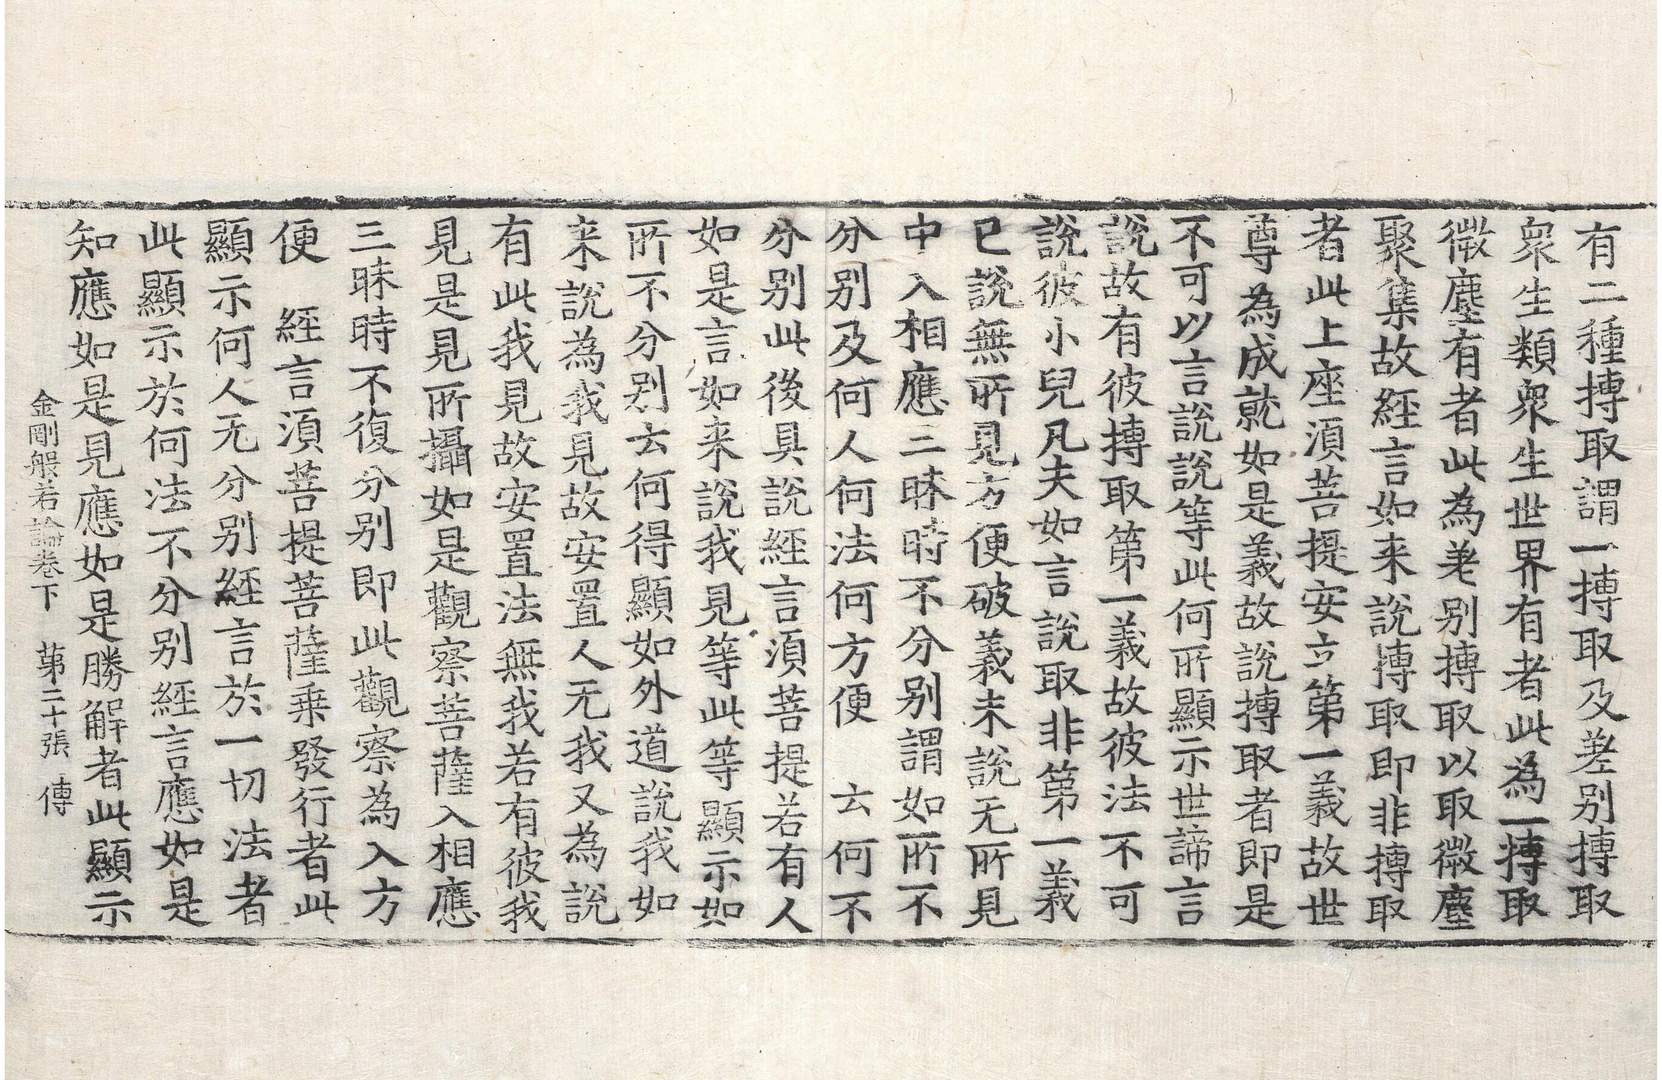 有二種摶取謂一摶取及差别摶取
衆生類衆生世界有者此為一摶取
微塵有者此為差别摶取以取微塵
聚集故經言如来說摶取即非摶取
者此上座湏菩提安立第一義故世
尊為成就如是義故說摶取者即是
不可以言說說等此何所顯示世諦言
說故有彼摶取第一義故彼法不可
說彼小兒凡夫如言說取非第一義
已說無所見方便破義未說无所見
中入相應三昧時不分别謂如所不
分别及何人何法何方便　云何不
分别此後具說經言湏菩提若有人
如是言如来說我見等此等顯示如
所不分别云何得顯如外道說我如
来說為我見故安置人无我又為說
有此我見故安置法無我若有彼我
見是見所攝如是觀察菩薩入相應
三昧時不復分别即此觀察為入方
便　經言湏菩提菩薩乗發行者此
顯示何人无分别經言於一切法者
此顯示於何法不分别經言應如是
知應如是見應如是勝解者此顯示
金剛般若論卷下　第二十張　傳